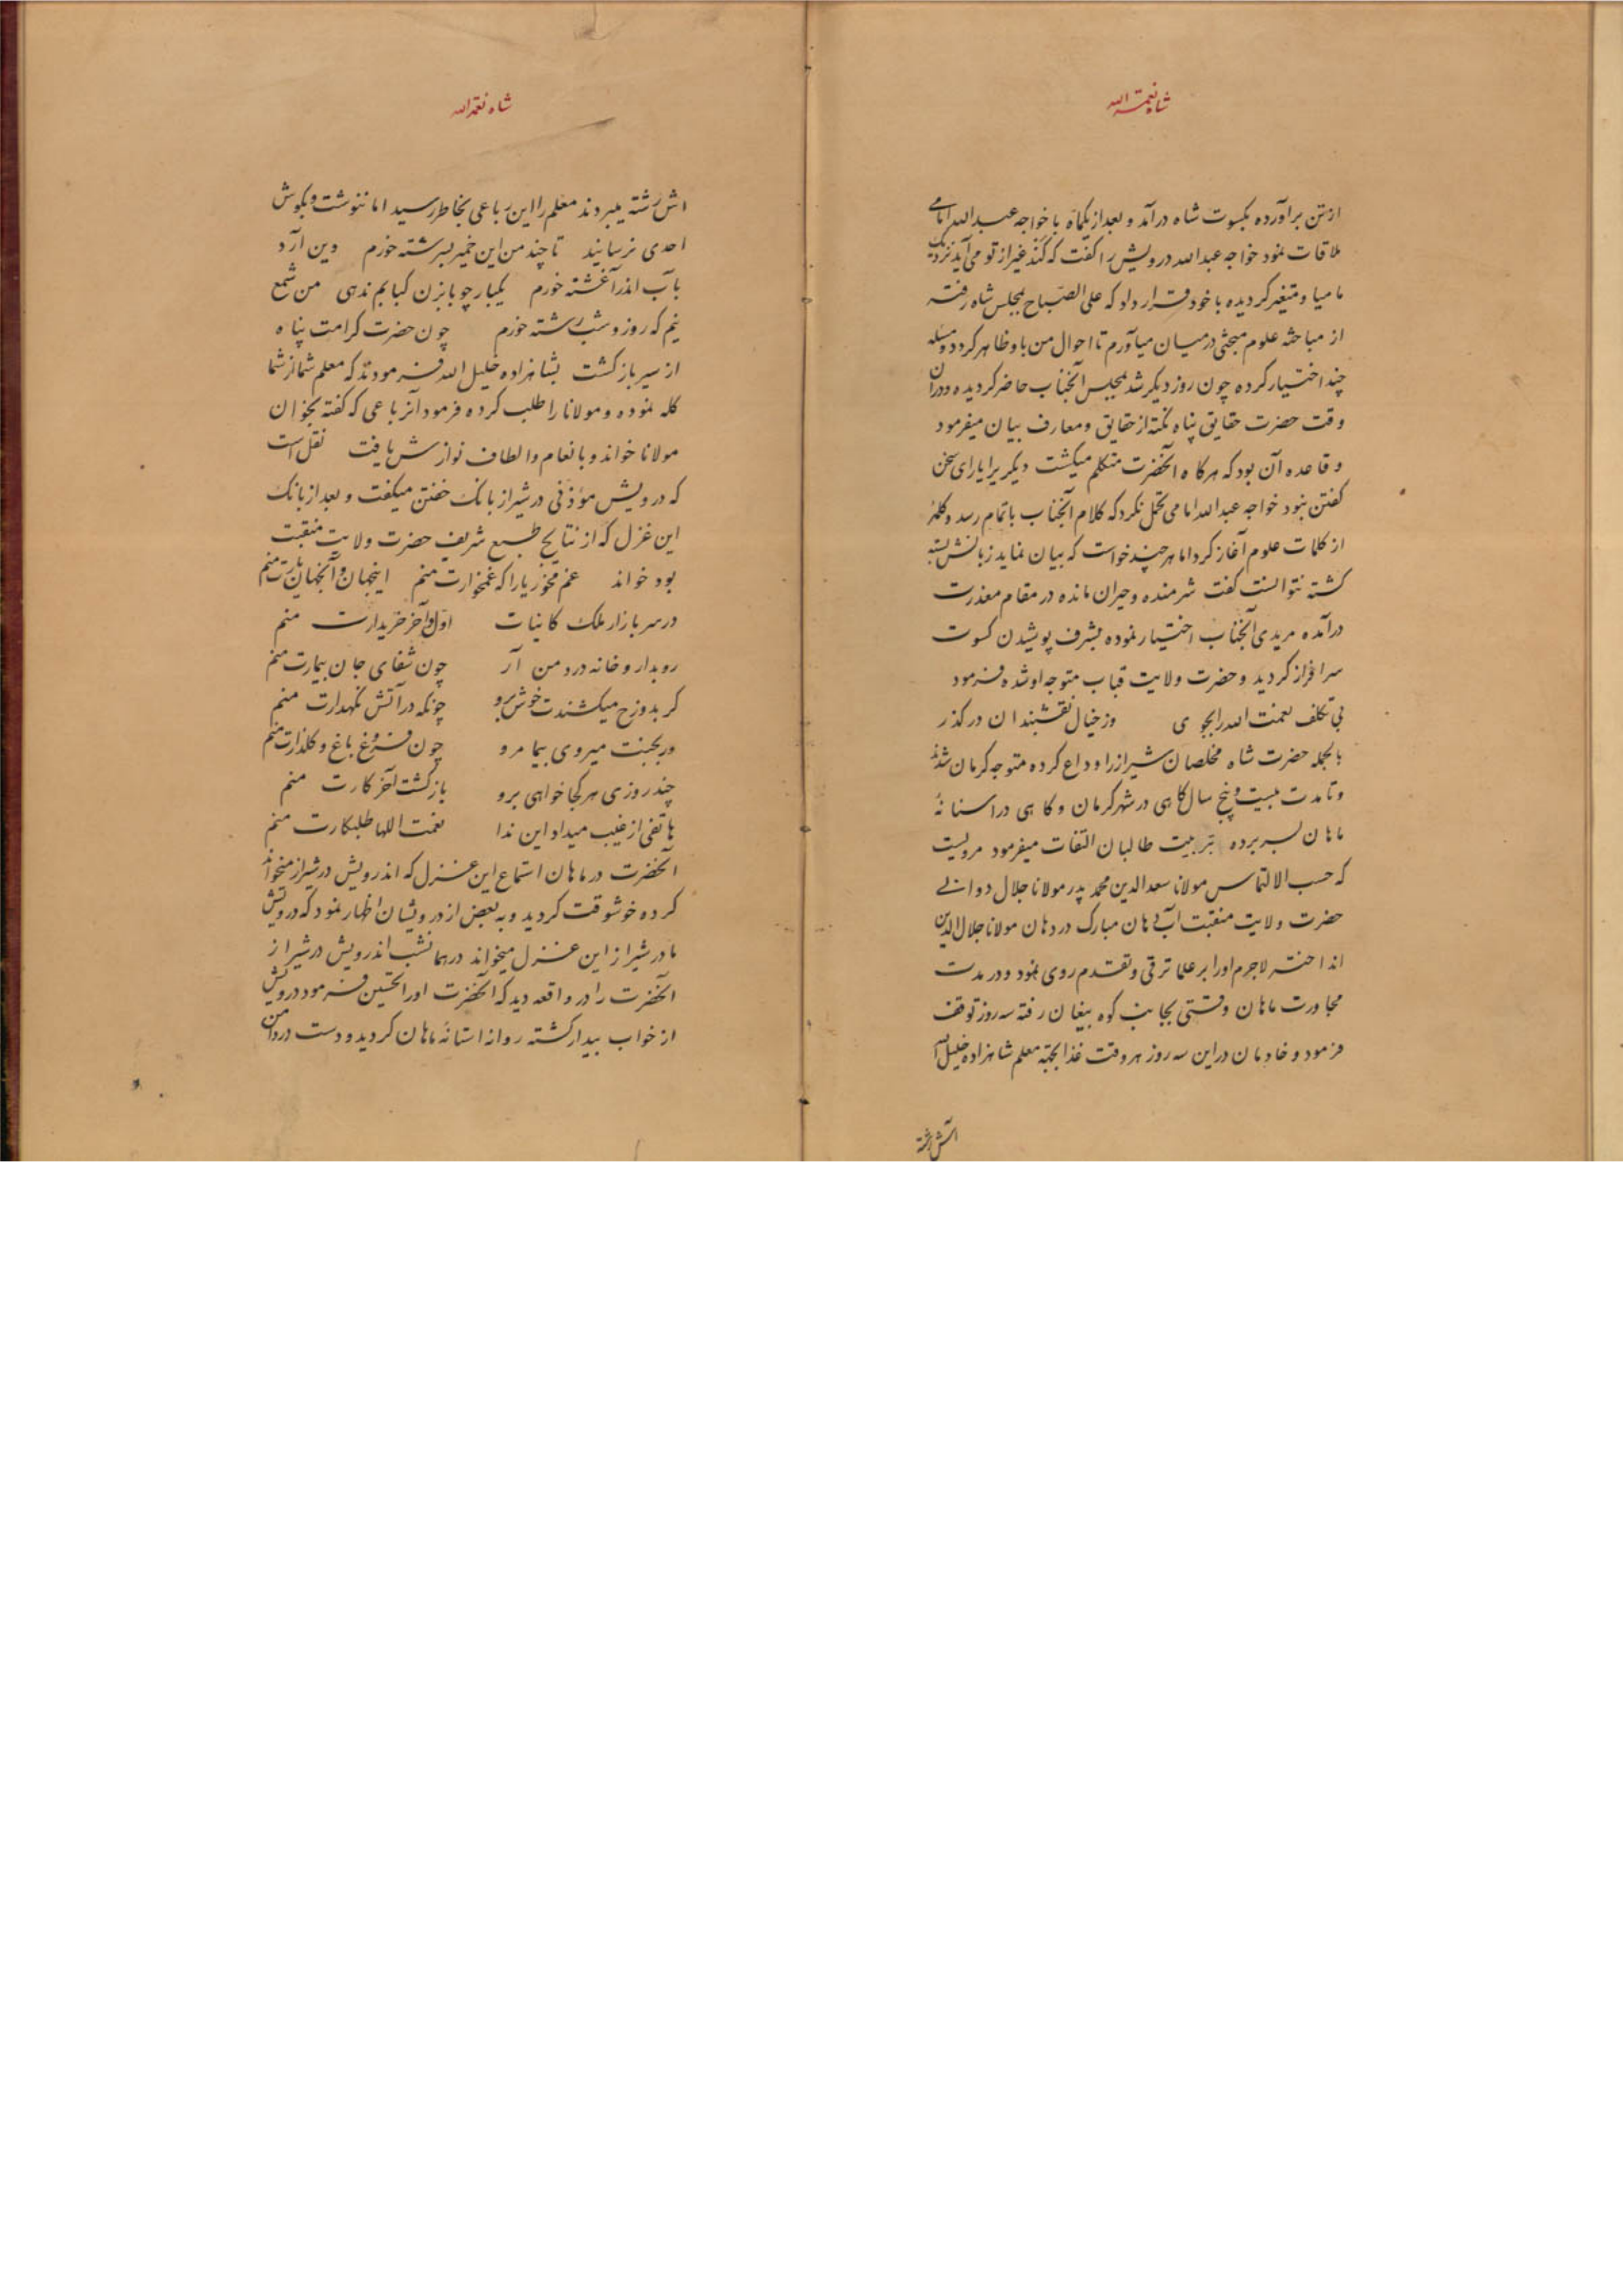 شاه نعمة الله
ازتن برآورده بکسوت شاه درآمد و بعد از یکماه با خواجه عبدالله امامی
ملاقات نمود خواجه عبدالله درویش را کفت که کند غیر از تو می آید نزدیک
ما میا و متغیر کردیده با خود قرار داد که علی الصباح بمجلس شاه رفته
از مباحثه علوم مبحثی درمیان میآورم تا احوال من باو ظاهر کردد و مسئله
چند اختیار کرده چون روز دیکر شد بمجلس آنجناب حاضر کردیده و در آن
وقت حضرت حقایق پناه نکته از حقایق و معارف بیان میفرمود
و قاعده آن بود که هرکاه آنحضرت متکلم میکشت دیکریرا یارای سخن
کفتن نبود خواجه عبدالله امامی تحمل نکرد که کلام آنجناب باتمام رسد و کلمهٔ
از کلمات علوم آغاز کرد اما هرچند خواست که بیان نماید زبانش بسته
کشته نتوانست کفت شرمنده و حیران مانده در مقام معذرت
درآمده مریدی آنجناب اختیار نموده بشرف پوشیدن کسوت
سرافراز کردید و حضرت ولایت قباب متوجه او شده فرمود
بی تکلف نعمت الله را بجوی وز خیال نقشبندان در کذر
بالجمله حضرت شاه مخلصان شیراز را وداع کرده متوجه کرمان شدند
و تا مدت بیست و پنج سال کاهی در شهر کرمان و کاهی در استانهٔ
ماهان بسر برده بتربیت طالبان التفات میفرمود مرویست
که حسب الالتماس مولانا سعدالدین محمد پدر مولانا جلال دوانی
حضرت ولایت منقبت آب دهان مبارک در دهان مولانا جلال الدین
انداخته لاجرم اورا بر علما ترقی و تقدم روی نمود و در مدت
مجاورت ماهان وقتی بجانب کوه بیغان رفته سه روز توقف
فرمود و خادمان دراین سه روز هر وقت غذا بجهة معلم شاهزاده خلیل الله
آش رشته
شاه نعمة الله
آش رشته میبردند معلم را این رباعی بخاطر رسید اما ننوشت و بکوش
احدی نرسانید تا چند من این خمیر بسرشته خورم وین آرد
بآب اندر آغشته خورم یکبار چو بابزن کبابم ندهی من شمع
نیم که روز و شب رشته خورم چون حضرت کرامت پناه
از سیر بازکشت بشاهزاده خلیل الله فرمودند که معلم شما از شما
کله نموده و مولانا را طلب کرده فرمود آنرباعی که کفته بخوان
مولانا خواند و بانعام والطاف نوازش یافت نقل است
که درویش مؤذنی در شیراز بانک خفتن میکفت و بعد از بانک
این غزل که از نتایج طبع شریف حضرت ولایت منقبت
بود خواند غم مخور یارا که غمخوارت منم اینجهان و آنجهان یارت منم
در سر بازار ملک کاینات اول و آخر خریدارت منم
روبدار و خانه درد من آر چون شفای جان بیمارت منم
کر بدوزخ میکشندت خوش برو چونکه در آتش نکهدارت منم
ور بجنت میروی بیما مرو چون فروغ باغ و کلذارت منم
چند روزی هر کجا خواهی برو بازکشت آخر کارت منم
هاتفی از غیب میداد این ندا نعمت اللها طلبکارت منم
آنحضرت در ماهان استماع این غزل که اندرویش در شیراز میخواند
کرده خوشوقت کردید و به بعض از درویشان اظهار نمود که درویش
ما در شیراز این غزل میخواند درهمانشب اندرویش در شیراز
آنحضرت را در واقعه دید که آنحضرت اورا تحسین فرمود درویش
از خواب بیدار کشته روانهٔ استانهٔ ماهان کردید و دست در دامن